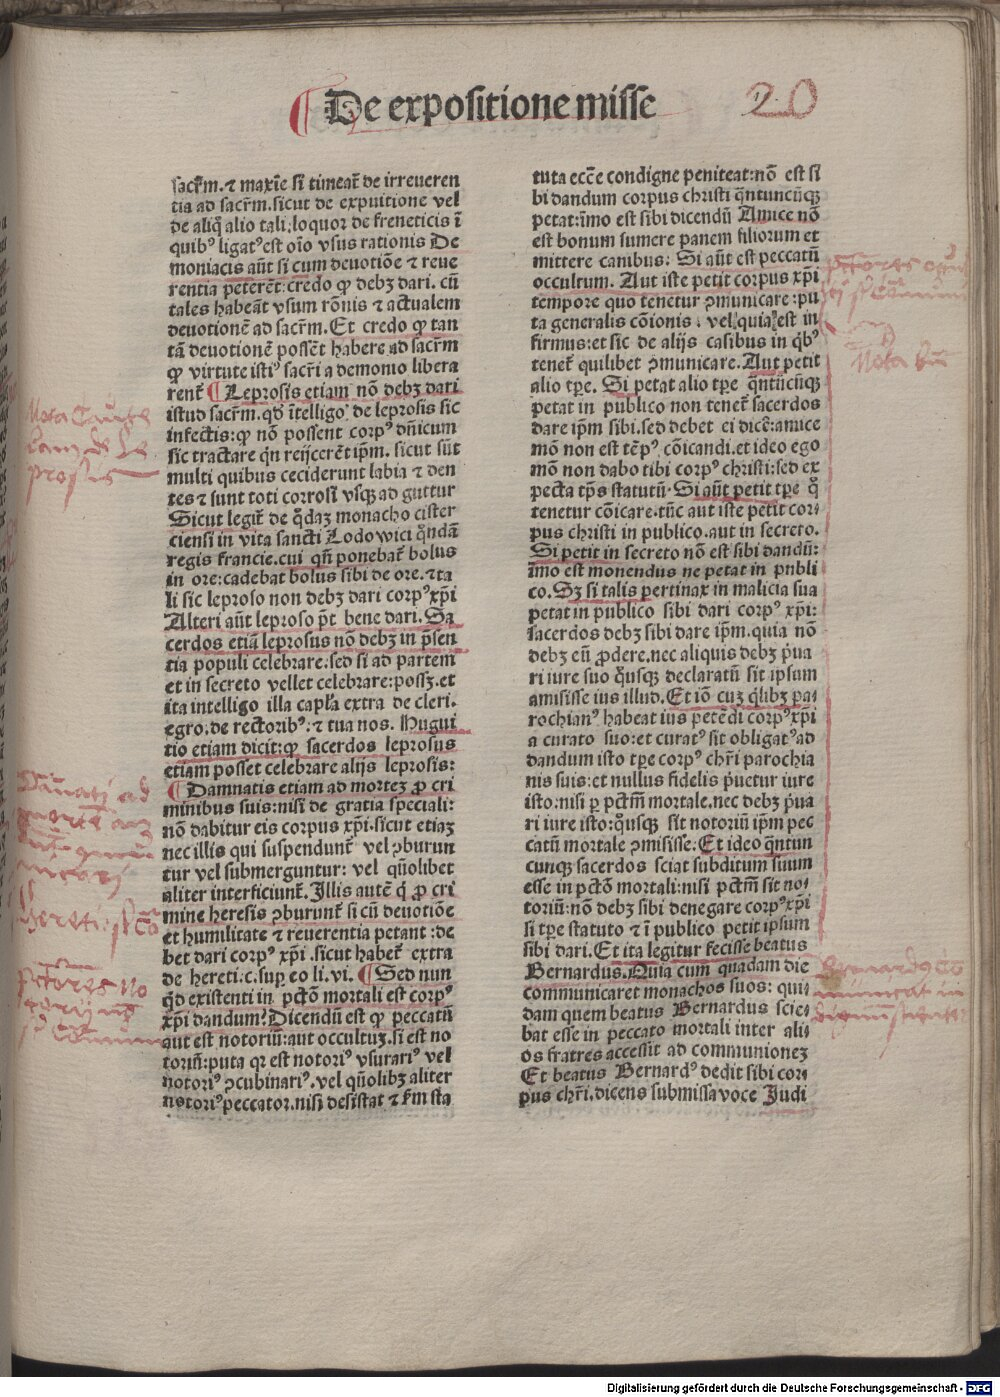 De expositione misse
20
sacr̄m. ⁊ maxīe si timeat̄ de irreueren
tia ad sacr̄m. sicut de expuitione vel
de aliq̄ alio tali: loquor de freneticis ī
quibꝰ ligatꝰ est oīo vsus rationis De
moniacis aūt si cum deuotiōe ⁊ reue
rentia peterēt: credo ꝙ debꝫ dari. cū
tales habeāt vsum rōnis ⁊ actualem
deuotionē ad sacr̄m. Et credo ꝙ tan
tā deuotionē possēt habere ad sacr̄m
ꝙ virtute istiꝰ sacr̄i a demonio libera
rent̄ ¶ Leprosis etiam nō debꝫ dari
istud sacr̄m. qd̄ ītelligo de leprosis sic
infectis: ꝙ nō possent corpꝰ dn̄icum
sic tractare qn̄ reijcerēt ip̄m. sicut sūt
multi quibus ceciderunt labia ⁊ den
tes ⁊ sunt toti corrosi vsqꝫ ad guttur
Sicut legit̄ de q̄daꝫ monacho cister
ciensi in vita sancti Lodowici q̄ndā
regis francie. cui qn̄ ponebat̄ bolus
in ore: cadebat bolus sibi de ore. ⁊ ta
li sic leproso non debꝫ dari corpꝰ xp̄i
Alteri aūt leproso p̄t bene dari. Sa
cerdos etiā leprosus nō debꝫ in p̄sen
tia populi celebrare. sed si ad partem
et in secreto vellet celebrare: possꝫ. et
ita intelligo illa capl̄a extra de cleri.
egro. de rectoribꝰ: ⁊ tua nos. Hugui
tio etiam dicit: ꝙ sacerdos leprosus
etiam posset celebrare alijs leprosis:
¶ Damnatis etiam ad morteꝫ ꝓ cri
minibus suis: nisi de gratia speciali:
nō dabitur eis corpus xp̄i. sicut etiaꝫ
nec illis qui suspendunt̄ vel ꝯburun
tur vel submerguntur: vel qūolibet
aliter interficiunt̄. Illis autē q̄ ꝓ cri
mine heresis ꝯburunt̄ si cū deuotiōe
et humilitate ⁊ reuerentia petant: de
bet dari corpꝰ xp̄i. sicut habet̄ extra
de hereti. c. sup̄ eo li. vi. ¶ Sed nun
q̄d existenti in pctō mortali est corpꝰ
xp̄i dandum? Dicendū est ꝙ peccatū
aut est notoriū: aut occultuꝫ. si est no
toriū: puta qr est notoriꝰ vsurariꝰ vel
notoriꝰ ꝯcubinariꝰ. vel qūolibꝫ aliter
notoriꝰ peccator. nisi desistat ⁊ fm̄ sta
tuta ecc̄e condigne peniteat: nō est si
bi dandum corpus christi q̄ntuncūqꝫ
petat: īmo est sibi dicendū Amice nō
est bonum sumere panem filiorum et
mittere canibus: Si aūt est peccatū
occultum. Aut iste petit corpus xp̄i
tempore quo tenetur ꝯmunicare: pu
ta generalis cōionis: vel quia est in
firmus: et sic de alijs casibus in q̄bꝰ
tenet̄ quilibet ꝯmunicare. Aut petit
alio tp̄e. Si petat alio tp̄e q̄ntūcūqꝫ
petat in publico non tenet̄ sacerdos
dare ip̄m sibi. sed debet ei dicē: amice
mō non est tēpꝰ cōicandi. et ideo ego
mō non dabo tibi corpꝰ christi: sed ex
pecta tp̄s statutū. Si aūt petit tp̄e q̄
tenetur cōicare. tūc aut iste petit cor
pus christi in publico. aut in secreto.
Si petit in secreto nō est sibi dandū:
īmo est monendus ne petat in pnbli
co. Sꝫ si talis pertinax in malicia sua
petat in publico sibi dari corpꝰ xp̄i:
sacerdos debꝫ sibi dare ip̄m. quia nō
debꝫ eū ꝓdere. nec aliquis debꝫ p̄ua
ri iure suo q̄usqꝫ declaratū sit ipsum
amisisse ius illud. Et iō cuꝫ q̄libꝫ pa
rochianꝰ habeat ius petēdi corpꝰ xp̄i
a curato suo: et curatꝰ sit obligatꝰ ad
dandum isto tp̄e corpꝰ chr̄i parochia
nis suis: et nullus fidelis p̄uetur iure
isto: nisi ꝑ pctm̄ mortale. nec debꝫ p̄ua
ri iure isto: q̄usqꝫ sit notoriū ip̄m pec
catū mortale ꝯmisisse. Et ideo q̄ntun
cunqꝫ sacerdos sciat subditum suum
esse in pctō mortali: nisi pctm̄ sit no
toriū: nō debꝫ sibi denegare corpꝰ xp̄i
si tp̄e statuto ⁊ ī publico petit ipsum
sibi dari. Et ita legitur fecisse beatus
Bernardus. Quia cum quadam die
communicaret monachos suos: qui
dam quem beatus Bernardus scie
bat esse in peccato mortali inter ali
os fratres accessit ad communioneꝫ
Et beatus Bernardꝰ dedit sibi cor
pus chr̄i. dicens submissa voce Judi